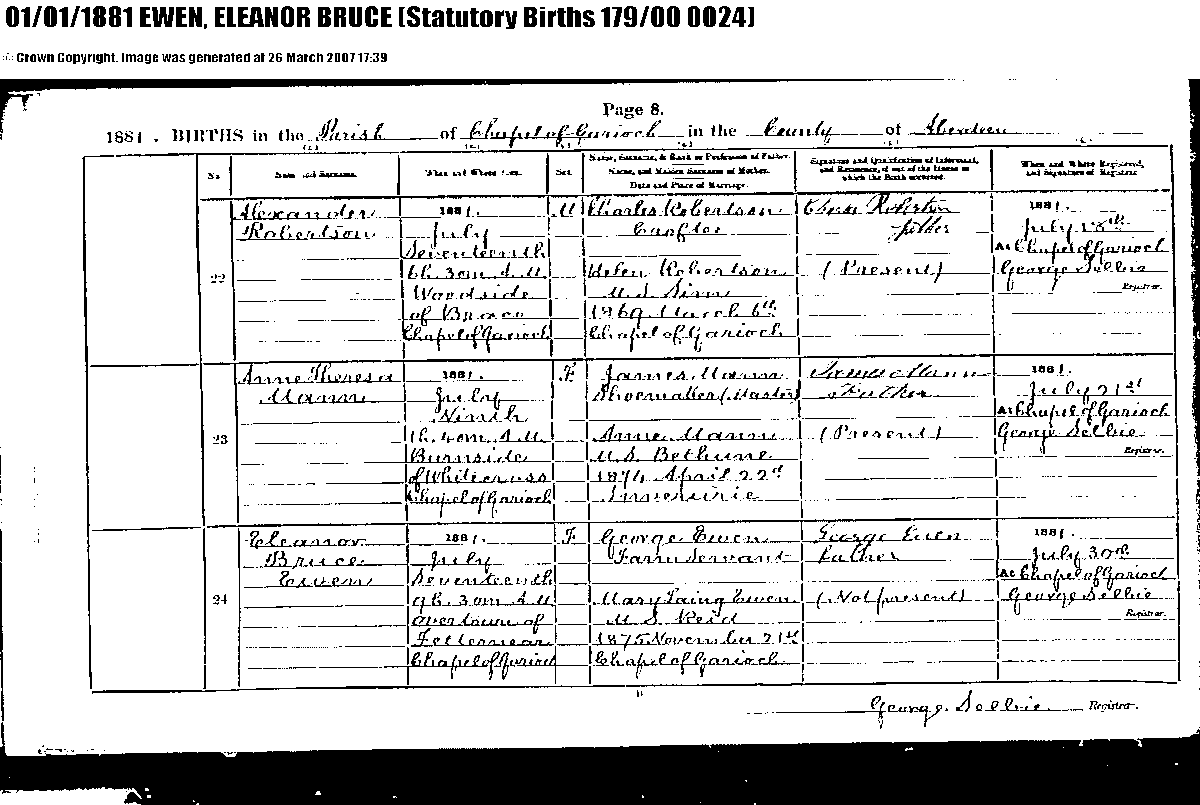 01/01/1881 EWEN, ELEANOR BRUCE (Statutory Births 179/00 0024)
© Crown Copyright. Image was generated at 26 March 2007 17:39
Page 8.
1881. BIRTHS in the Parish of Chapel of Garioch in the County of Aberdeen
No.
Name and Surname.
When and Where Born.
Sex.
Name, Surname, & Rank or Profession of Father.
Name, and Maiden Surname of Mother.
Date and Place of Marriage.
Signature and Qualification of Informant,
and Residence, if out of the House in
which the Birth occurred.
When and Where Registered,
and Signature of Registrar.
22
Alexander
Robertson
1881.
July
Seventeenth
6h. 30m. A.M.
Woodside
of Braco
Chapel of Garioch
M
Charles Robertson
Crofter
Helen Robertson
M.S. Sim
1869 March 6th
Chapel of Garioch
Charles Robertson
father
(Present)
1881.
July 18th
At Chapel of Garioch
George Sellie
Registrar.
23
Anne Theresa
Mann
1881.
July
Ninth
1h. 40m. A.M.
Burnside
of Whitecross
Chapel of Garioch
F.
James Mann
Shoemaker (Master)
Anne Mann
M.S. Bethune
1874 April 22d
Inverurie
James Mann
Father
(Present)
1881.
July 21st
At Chapel of Garioch
George Sellie
Registrar.
24
Eleanor
Bruce
Ewen
1881.
July
Seventeenth
9h. 30m. A.M.
Overtown of
Fetternear
Chapel of Garioch
F
George Ewen
Farm Servant
Mary Laing Ewen
M.S. Reid
1875 November 21st
Chapel of Garioch
George Ewen
Father
(Not present)
1881.
July 30th
At Chapel of Garioch
George Sellie
Registrar.
George Sellie Registrar.